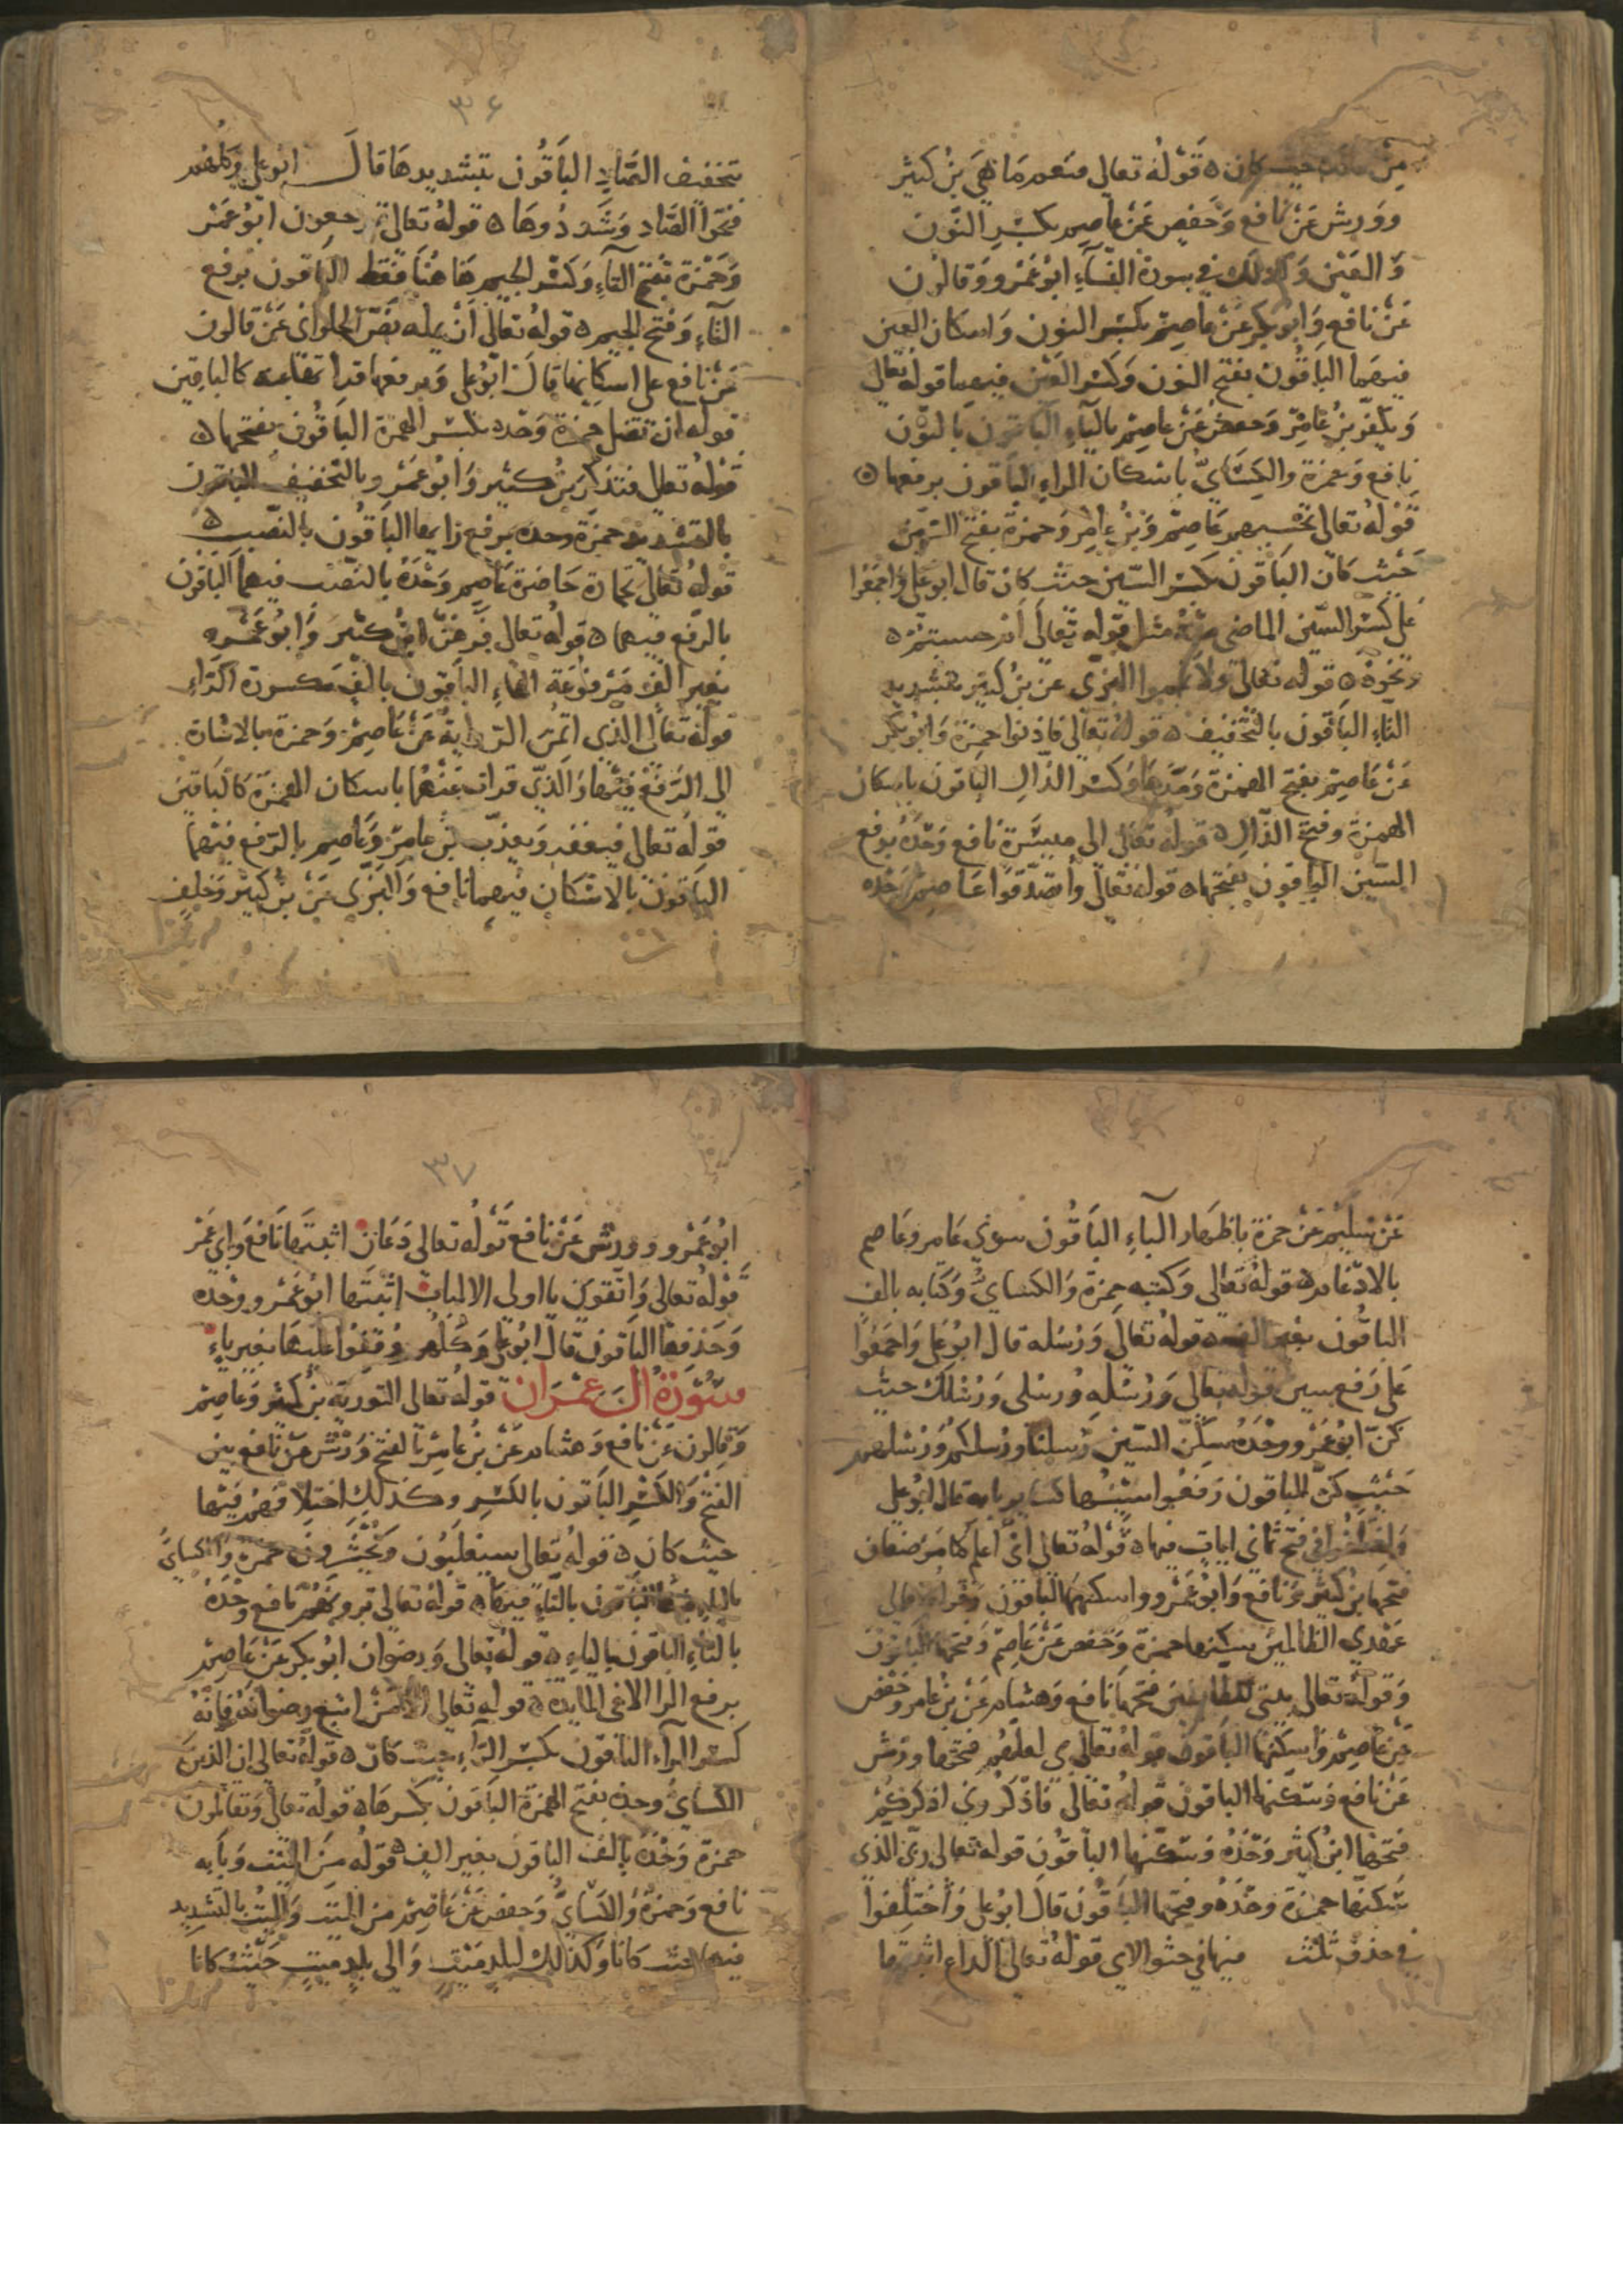 قوله تعالى فنعما هي بن كثير
وورش عن نافع وحفص عن عاصم بكسر النون
والعين وكذلك في سورة النساء ابو عمرو وقالون
عن نافع وابو بكر عن عاصم بكسر النون واسكان العين
فيهما الباقون بفتح النون وكسر العين فيهما قوله تعالى
ويكفر بن عامر وحفص عن عاصم بالياء الباقون بالنون
نافع وحمزة والكسائي باسكان الراء الباقون برفعها ه
قوله تعالى تحسبهم عاصم وبن عامر وحمزة بفتح السين
حيث كان الباقون بكسر السين حيث كان قال ابو علي واجمعوا
على كسر السين الماضي مثل قوله تعالى ام حسبتم ه
ونحوه ه قوله تعالى ولا تيمموا البزي عن بن كثير بتشديد
التاء الباقون بالتخفيف ه قوله تعالى فاذنوا حمزة وابو بكر
عن عاصم بفتح الهمزة ومدها وكسر الذال الباقون باسكان
الهمزة وفتح الذال ه قوله تعالى الى ميسرة نافع وحده برفع
السين الباقون بفتحها ه قوله تعالى وأن تصدقوا عاصم وحده
٣٦
بتخفيف الصاد الباقون بتشديدها قال ابو علي وكلهم
فتحوا الصاد وشددوها ه قوله تعالى ترجعون ابو عمرو
وحمزة بفتح التاء وكسر الجيم هاهنا فقط الباقون برفع
التاء وفتح الجيم ه قوله تعالى أن يمل هو نص الحلواني عن قالون
عن نافع على اسكانها قال ابو علي وبرفعها قرأت كالباقين
قوله ان تضل حمزة وحده بكسر الهمزة الباقون بفتحها ه
قوله تعالى فتذكر بن كثير وابو عمرو بالتخفيف الباقون
بالتشديد حمزة وحده برفع رايها الباقون بالنصب ه
قوله تعالى تجارة حاضرة عاصم وحده بالنصب فيهما الباقون
بالرفع فيهما ه قوله تعالى فرهن ابن كثير وابو عمرو
بغير الف مرفوعة الهاء الباقون بالف مكسورة الراء
قوله تعالى الذي اتمن الرواية عن عاصم وحمزة بالاشارة
الى الرفع فيها والذي قرات عنهما باسكان الهمزة كالباقين
قوله تعالى فيغفر ويعذب بن عامر وعاصم بالرفع فيهما
الباقون بالاسكان فيهما نافع والبزي عن بن كثير وخلف
عن سليم عن حمزة باظهار الباء الباقون سوى عامر وعاصم
بالادغام ه قوله تعالى وكتبه حمزة والكسائي وكتابه بالف
الباقون بغير الف ه قوله تعالى ورسله قال ابو علي واجمعوا
على رفع سين قوله تعالى ورسله ورسلى ورسلك حيث
كن ابو عمرو وحده سكن السين رسلنا ورسلكم ورسلهم
حيث كن الباقون رفعوا سينها قال ابو علي
واختلفوا في فتح ثماني ايات فيها ه قوله تعالى اني أعلم كلا موضعان
فتحها بن كثير ونافع وابو عمرو واسكنهما الباقون وقوله تعالى
عهدي الظالمين يسكنها حمزة وحفص عن عاصم وفتحها الباقون
وقوله تعالى بيتي للطايفين فتحها نافع وهشام عن بن عامر وحفص
عن عاصم واسكنها الباقون قوله تعالى بي لعلهم فتحها ورش
عن نافع وسكنها الباقون قوله تعالى فاذكروني اذكركم
فتحها ابن كثير وحده وسكنها الباقون قوله تعالى ربي الذي
سكنها حمزة وحده وفتحها الباقون قال ابو علي واختلفوا
في حذف ثلث فيها في حشو الاي قوله تعالى الداع اثبتها
٣٧
ابو عمرو وورش عن نافع قوله تعالى دعان اثبتها نافع وابي عمرو
قوله تعالى واتقون يا اولى الالباب اثبتها ابو عمرو وحده
وحذفها الباقون قال ابو علي وكلهم وقفوا عليها بغير ياء
سورة ال عمران قوله تعالى التورية بن كثير وعاصم
وقالون عن نافع وهشام عن بن عامر بالفتح ورش عن نافع بين
الفتح والكسر الباقون بالكسر وكذلك اختلافهم فيها
حيث كان ه قوله تعالى سيغلبون ويحشرون حمزة والكسائي
بالياء الباقون بالتاء فيهما ه قوله تعالى ترونهم نافع وحده
بالتاء الباقون بالياء ه قوله تعالى ورضوان ابو بكر عن عاصم
برفع الرا الا في المايدة ه قوله تعالى من اتبع رضوانه فانه
كسر الراء الباقون بكسر الراء حيث كان ه قوله تعالى ان الذين
الكسائي وحده بفتح الهمزة الباقون بكسرها ه قوله تعالى وتقاتلون
حمزة وحده بالف الباقون بغير الف ه قوله من الميت وبابه
نافع وحمزة والكسائي وحفص عن عاصم من الميت والميت بالتشديد
فيهما حيث كانا وكذلك لبلد ميت والى بلد ميت حيث كانا